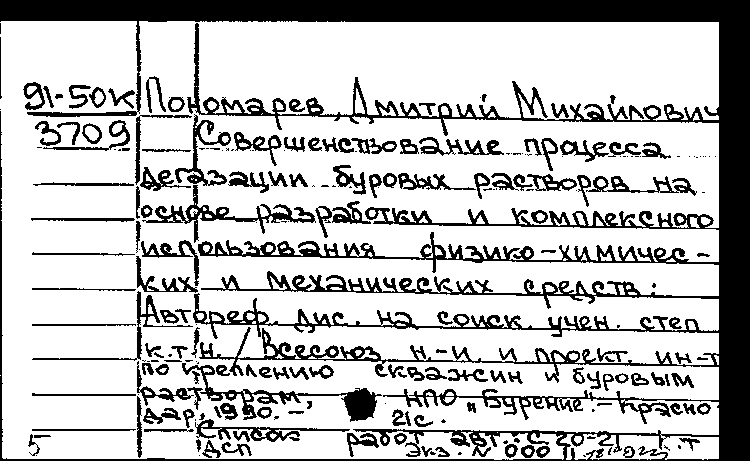 91-50к Пономарев, Дмитрий Михайлович
3709 Совершенствование процесса
дегазации буровых растворов на
основе разработки и комплексного
использования физико-химичес-
ких и механических средств:
Автореф. дис. на соиск. учен. степ
к.т.н. / Всесоюз. н.-и. и проект. ин-т
по креплению скважин и буровым
растворам, НПО "Бурение".- Красно
дар, 1990. - 21с.
Список работ авт.: с 20-21 к.т
5 ДСП Экз. N 000 11